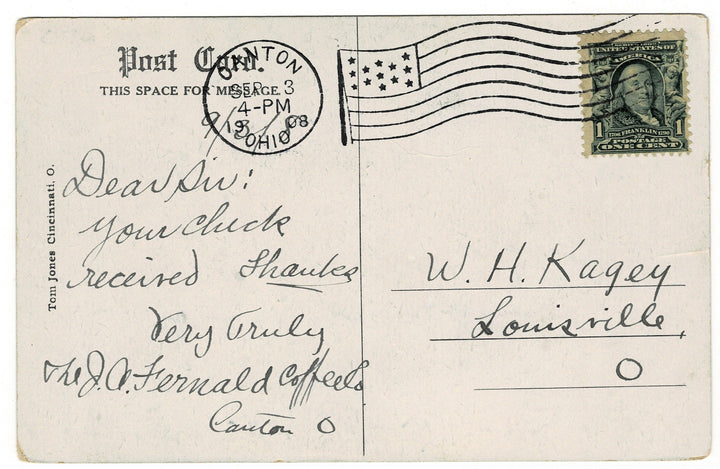 Post Card.
THIS SPACE FOR MESSAGE
CANTON
SEP 3
4-PM
1908
OHIO
UNITED STATES OF
AMERICA
1 1706 FRANKLIN 1790 1
POSTAGE
ONE CENT
Tom Jones Cincinnati. O.
Dear Sir:
your check
received Thanks
Very Truly
The J. A. Fernald Coffee Co
Canton O
W. H. Kagey
Louisville,
O